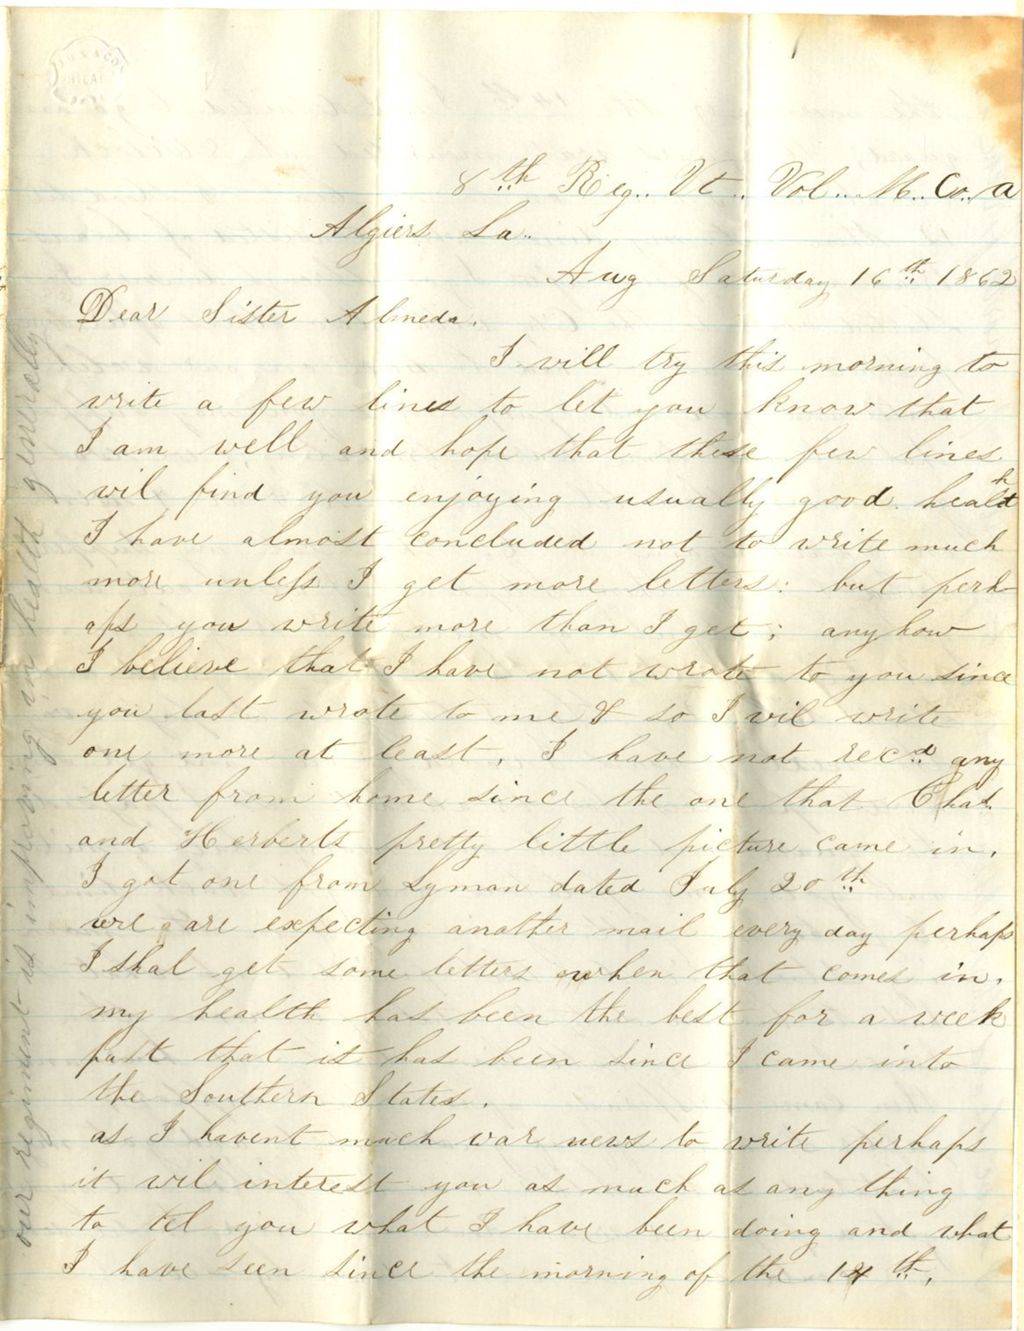 8th Reg.. Vt.. Vol.. M.. Co. A
Algiers La..
Aug Saturday 16th 1862
Dear Sister Almeda.
I will try this morning to
write a few lines to let you know that
I am well and hope that these few lines
wil find you enjoying usually good health
I have almost concluded not to write much
more unless I get more letters: but perh-
aps you write more than I get; anyhow
I believe that I have not wrote to you since
you last wrote to me & so I wil write
one more at least. I have not recd any
letter from home since the one that Chas.
and Herberts pretty little picture came in.
I got one from Lyman dated July 20th
we are expecting another mail every day perhaps
I shal get some letters when that comes in.
my health has been the best for a week
past that it has been since I came into
the Southern States.
as I havent much war news to write perhaps
it wil interest you as much as any thing
to tel you what I have been doing and what
I have seen since the morning of the 14th.
our regiment is improving in health generally